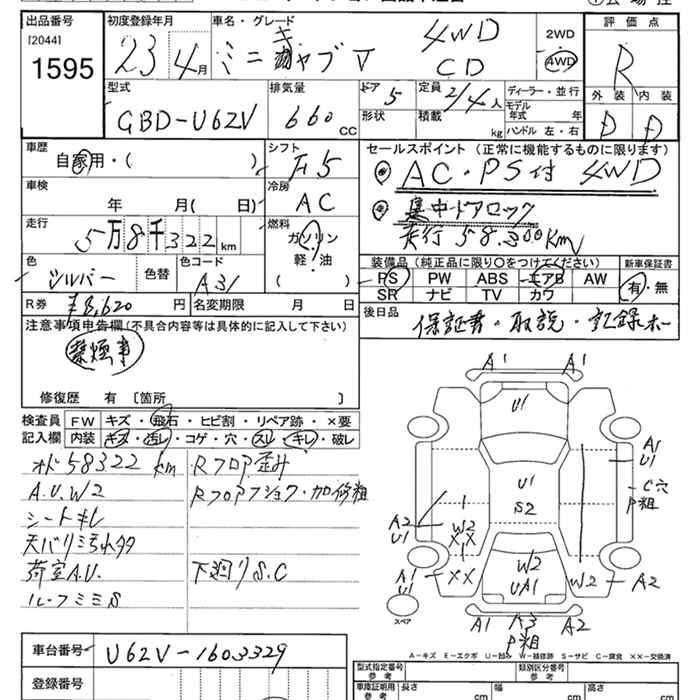 出品番号 初度登録年月 車名・グレード 評価点
[2044]
1595
23 4月 ミニキャブV 4WD CD
2WD
4WD
R
型式 排気量 ドア 定員 ディーラー・並行 外装 内装
GBD-U62V 660CC 5 2/4人
モデル年式 年式
形状 積載 kg ハンドル 左・右
D D
車歴 シフト セールスポイント (正常に機能するものに限ります)
自家用・( ) F5 AC・PS付 4WD
車検 冷房
年 月( 日) AC 集中ドアロック
走行 燃料 走行 58,300Km
5万8千322km ガソリン
軽・油
( )
色 色替 色コード
シルバー A31
装備品(純正品に限り○をつけてください) 新車保証書
PS PW ABS エアB AW 有・無
SR ナビ TV カワ
R券 ¥8,620円 名変期限 月 日
後日品 保証書・取説・記録ボー
注意事項申告欄(不具合内容等は具体的に記入して下さい)
禁煙車
修復歴 有 [箇所 ]
検査員 FW キズ・飛石・ヒビ割・リペア跡・×要
記入欄 内装 キズ・汚レ・コゲ・穴・スレ・キレ・破レ
オド 58322 km Rフロア歪み
A.U.W2 Rフロアプッシュ・加修粗
シートキレ
天バリミ汚れタタ
荷室A.U. 下廻りS.C
ルーフミミS
A1 A1
U1
A1
U1
C穴
P粗
U1
S2
A2
U1
W2
XX
A1
U1
XX
W2
UA1
W2 A2
スペア
A1 A3 A2
P粗
A-キズ E-エクボ U-凹み W-補修跡 S-サビ C-腐食 XX-交換済
車台番号 U62V-1603329
登録番号
型式指定番号 参考 類別区分番号 参考
車庫証明用 参考 長さ cm 幅 cm 高さ cm